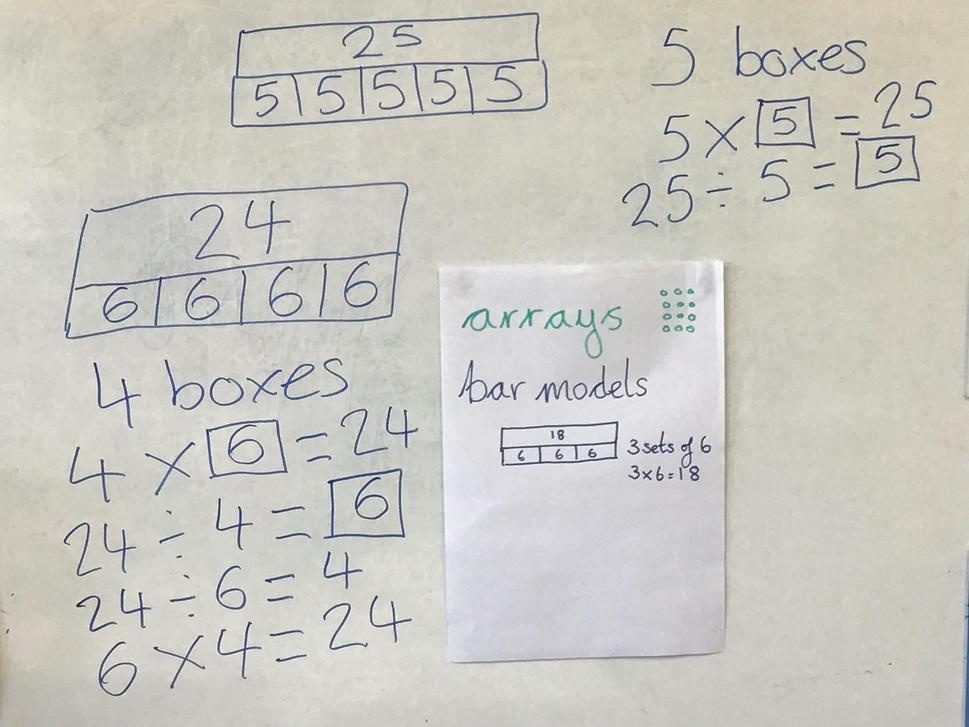 25
5 5 5 5 5
5 boxes
5 × 5 = 25
25 ÷ 5 = 5
24
6 6 6 6
4 boxes
4 × 6 = 24
24 ÷ 4 = 6
24 ÷ 6 = 4
6 × 4 = 24
arrays
bar models
18
6 6 6
3 sets of 6
3×6=18